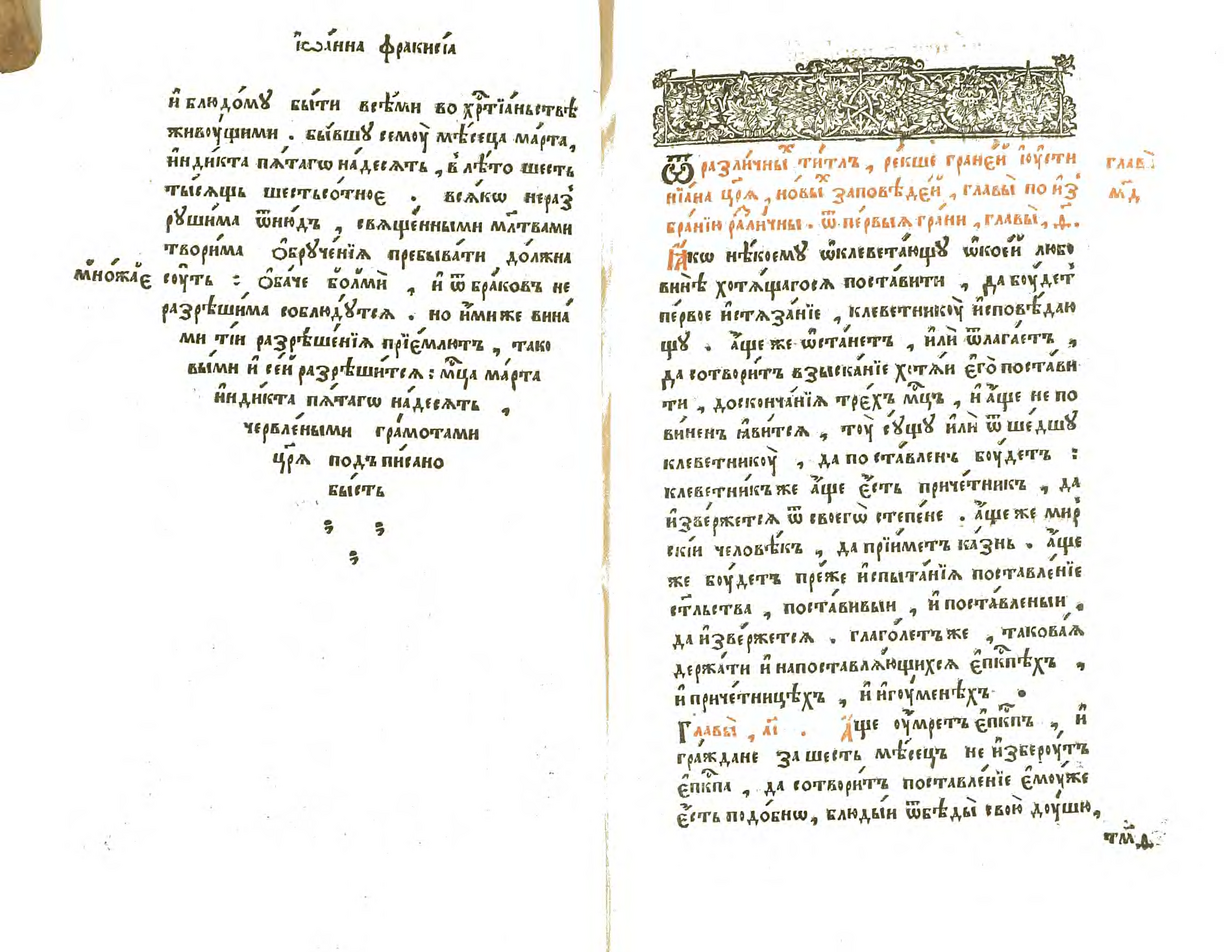 І҆ѡа́нна фракисі́а
и҆ блюдо́мꙋ бы́ти всѣ́ми во хрⷭ҇тїа́ньствѣ
живоу́щими . бы́вшꙋ семоу̀ мѣ́сеца ма́рта,
и҆нди́кта пѧ́тагѡ на́десѧть , в̾ лѣ́то шесть
ты́сѧщь шестьсо́тное . всѧ́кѡ нераз̾
рꙋши́ма ѿню́дъ , свѧще́нными млт҃вами
твори́ма ѻ҆брꙋче́нїѧ пребыва́ти до́лжна
мно́жае
соу́ть : ѻ҆ба́че бо́лми , и҆ ѿ бра́ковъ не
разрѣши́ма соблюдꙋ́тсѧ . но и҆́миже вина́
ми ті́и разрѣше́нїѧ прїе́млютъ , тако
вы́ми и҆ се́й разрѣши́тсѧ : мц҃а ма́рта
и҆нди́кта пѧ́тагѡ на́десѧть ,
черьвле́ными гра́мотами
цр҃ѧ подъпи́сано
бы́сть
Ѿ разли́чныⷯ ти́тлъ , ре́кше гране́й і҆оу́сти
нїа́на цр҃ѧ , но́выⷯ за́поведей , главы̀ по и҆з̾
бра́нїю ра́личны . ѿ пе́рвыѧ гра́ни , главы̀ , д҃ .
главы̀
м҃д
Ꙗ҆́кѡ нѣ́коему ѡ҆клевета́ющꙋ ѡ҆ко́ей любо
винѣ̀ хотѧ́щагосѧ поста́вити , да боу́детъ
пе́рвое и҆стѧза́нїе , клеветникоу̀ и҆сповѣ́даю
щꙋ . а҆́ще же ѡ҆ста́нетъ , и҆лѝ ѿлага́етъ ,
да сотвори́тъ взыска́нїе хотѧ́и є҆го̀ поста́ви
ти , доскончанїѧ тре́хъ мц҃ъ , и҆ а҆́ще не по
ви́ненъ ꙗ҆ви́тсѧ , тоу̀ сꙋ́щꙋ и҆лѝ ѿше́дшꙋ
клеветникоу̀ , да поставленъ боу́детъ :
клеветни́къже а҆́ще є҆́сть приче́тникъ , да
и҆зве́ржетсѧ ѿ своегѡ̀ степе́не . а҆́ще же мир̾
скі́и человѣ́къ , да прїи́метъ ка́знь . а҆́ще
же боу́детъ пре́же и҆спыта́нїѧ поставле́нїе
ст҃льства , поста́вивыи , и҆ поста́вленыи ,
да и҆зве́ржетсѧ . глаго́летъже , такова́ѧ
держа́ти и҆ напоставлѧ́ющихсѧ є҆пкⷭ҇пѣхъ ,
и҆ приче́тницѣхъ , и҆ и҆гоу́менѣхъ .
Главы̀ , а҃і . А҆́ще оу҆́мретъ є҆пкⷭ҇пъ , и҆
гра́ждане за шесть мѣ́сецъ не и҆збероу́тъ
є҆пкⷭ҇па , да сотвори́тъ поставле́нїе є҆моу́же
є҆́сть подо́бнѡ , блюды́и ѿбѣды̀ свою̀ доу́шю ,
тм҃д .